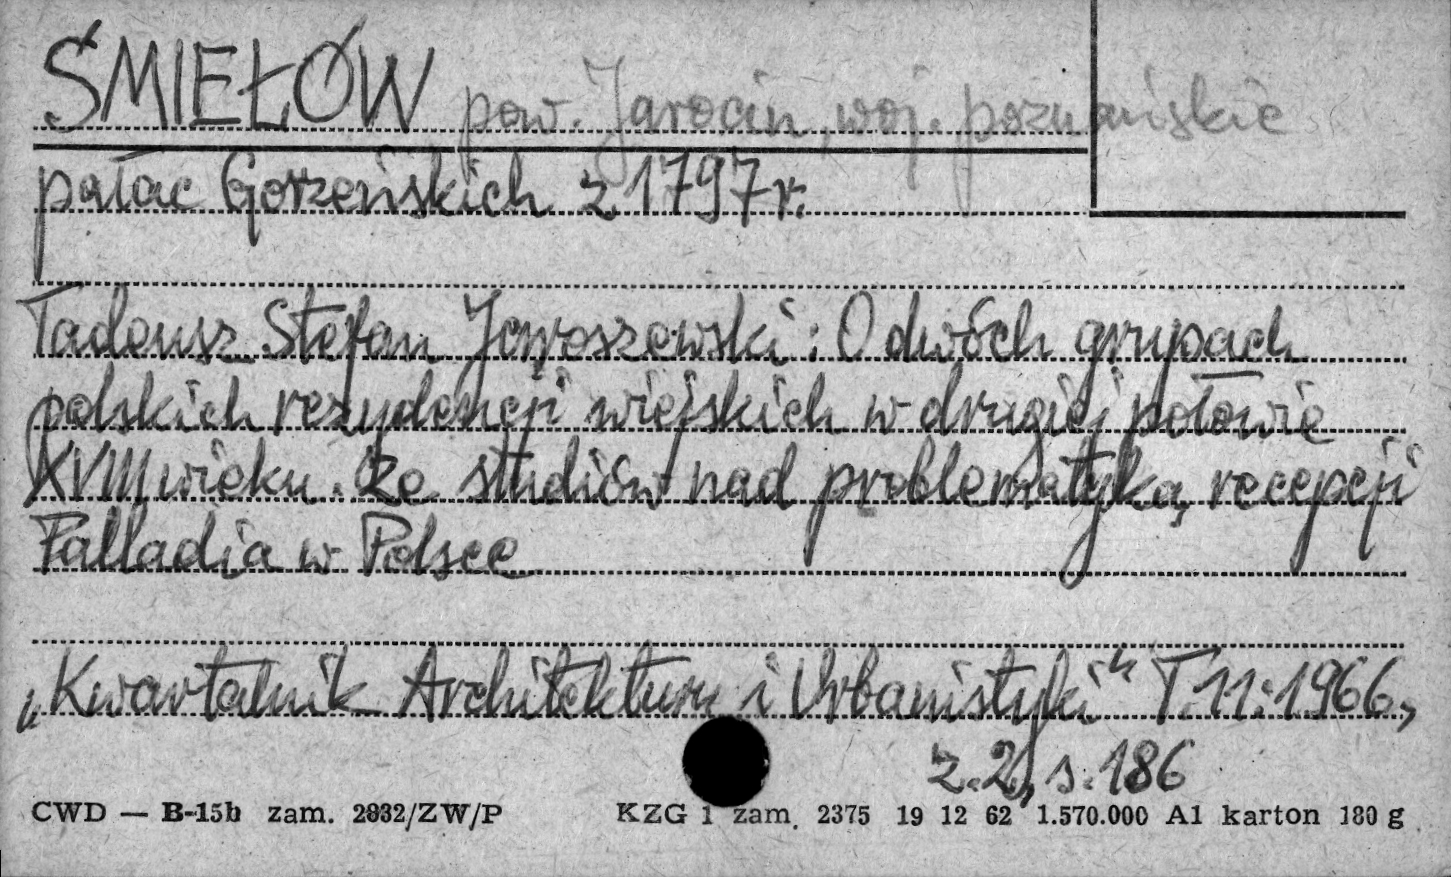 ŚMIEŁÓW pow. Jarocin, woj. poznańskie
pałac Gorzeńskich z 1797 r.
Tadeusz Stefan Jaroszewski: O dwóch grupach
polskich rezydencji wiejskich w drugiej połowie
XVIII wieku. Ze studiów nad problematyką recepcji
Palladia w Polsce
„Kwartalnik Architektury i Urbanistyki" T.11:1966,
z.2, s.186
CWD — B-15b zam. 2932/ZW/P KZG 1 zam. 2375 19 12 62 1.570.000 A1 karton 180 g